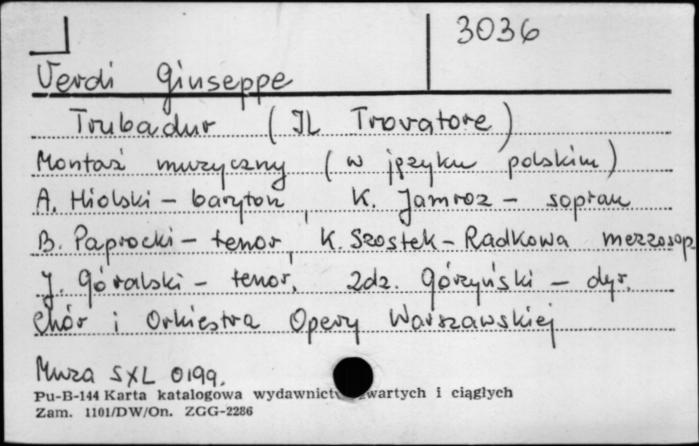 3036
Verdi Giuseppe
Trubadur (IL Trovatore)
Montaż muzyczny (w języku polskim)
A. Hiolski - baryton, K. Jamroz - sopran
B. Paprocki - tenor, K. Szostek-Radkowa mezzosop
J. Góralski - tenor, Zdz. Górzyński - dyr.
Chór i Orkiestra Opery Warszawskiej
Muza SXL 0199.
Pu-B-144 Karta katalogowa wydawnictw zwartych i ciągłych
Zam. 1101/DW/On. ZGG-2286